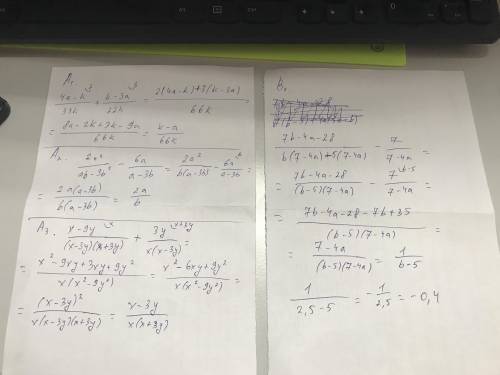 A₁
(4a-k)/33k ²⁾ + (k-3a)/22k ³⁾ = (2(4a-k)+3(k-3a))/66k =
= (8a-2k+3k-9a)/66k = (k-a)/66k
A₂. 2a²/(ab-3b²) - 6a/(a-3b) = 2a²/(b(a-3b)) - 6a ᵇ/(a-3b) =
= 2a(a-3b)/(b(a-3b)) = 2a/b
A₃. (x-9y) ˣ/((x-3y)(x+3y)) + 3y ˣ⁺³ʸ/(x(x-3y)) =
= (x²-9xy+3xy+9y²)/(x(x²-9y²)) = (x²-6xy+9y²)/(x(x²-9y²)) =
= (x-3y)²/(x(x-3y)(x+3y)) = (x-3y)/(x(x+3y))
B₁
(7b-4a-28)/(b(7-4a)+5(7-4a)) - 7/(7-4a) =
= (7b-4a-28)/((b-5)(7-4a)) - 7 ᵇ⁻⁵/(7-4a) =
= (7b-4a-28-7b+35)/((b-5)(7-4a)) =
= (7-4a)/((b-5)(7-4a)) = 1/(b-5)
1/(2,5-5) = -1/2,5 = -0,4